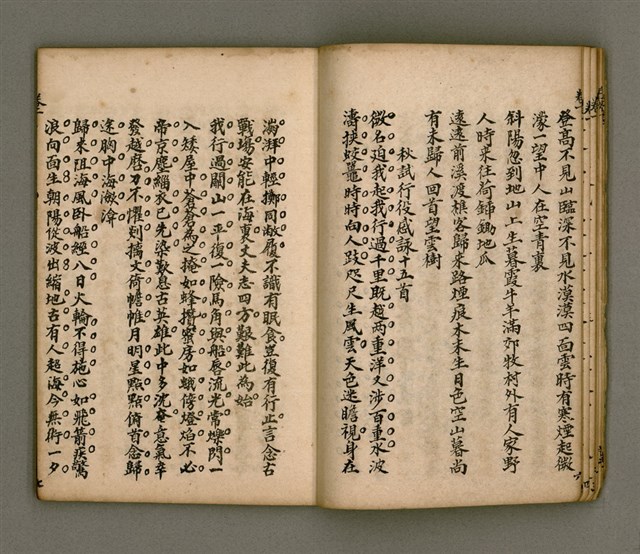 登高不見山臨深不見水漠漠四面雲時有寒煙起微
濛一望中人在空青裏
斜陽忽到地山上生暮霞牛羊滿郊牧村外有人家野
人時來往荷鋤鋤地瓜
遠遠前溪渡槳客歸來路煙痕木末生日色空山暮尚
有未歸人回首望雲樹
秋試行役感詠十五首
微名迫我起我行過千里既越兩重洋又涉百重水波
濤挾蛟鼉時時向人跂咫尺生風雲天色迷瞻視身在
淜湃中輕擲同敝履不識有眠食豈復有行止言念古
戰場安能在海東丈夫志四方艱難此為始
我行過關山一平復一險馬角與船唇流光常爍閃一
入矮屋中蒼蒼為之掩如蜂攢蜜房如蛾傍燈焰不必
帝京塵緇衣已先染歎息古英雄此中多洗奮意氣辛
發越磨刀不懼剡摛文荷幨帷月明星點點俯首念歸
途胸中海潋滟
歸來阻海風臥船經八日火輪不得施心如飛箭疾驚
浪向面生朝陽從波出縮地古有人超海今無術一夕